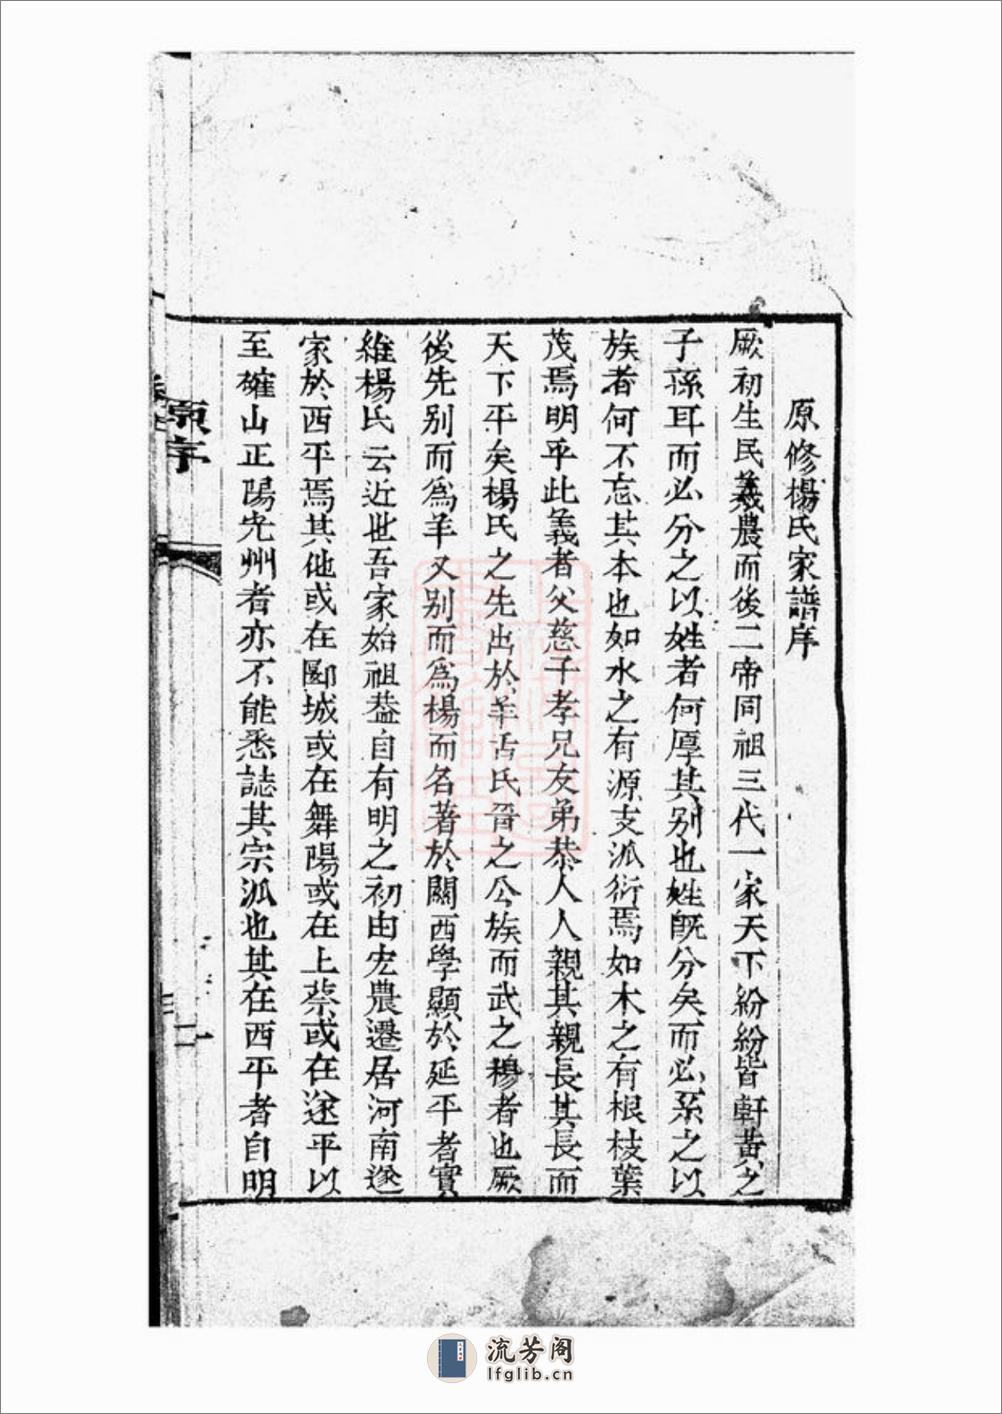 原修楊氏家譜序
厥初生民羲農而後二帝同祖三代一家天下紛紛皆軒黃之
子孫耳而必分之以姓者何厚其别也姓旣分矣而必系之以
族者何不忘其本也如水之有源支派衍焉如木之有根枝葉
茂焉明乎此義者父慈子孝兄友弟恭人人親其親長其長而
天下平矣楊氏之先出於羊舌氏晉之公族而武之穆者也厥
後先别而爲羊又别而爲楊而名著於關西學顯於延平者實
維楊氏云近世吾家始祖葢自有明之初由宏農遷居河南遂
家於西平焉其他或在郾城或在舞陽或在上蔡或在遂平以
至確山正陽光州者亦不能悉誌其宗派也其在西平者自明
原序
一
流芳阁
lfglib.cn